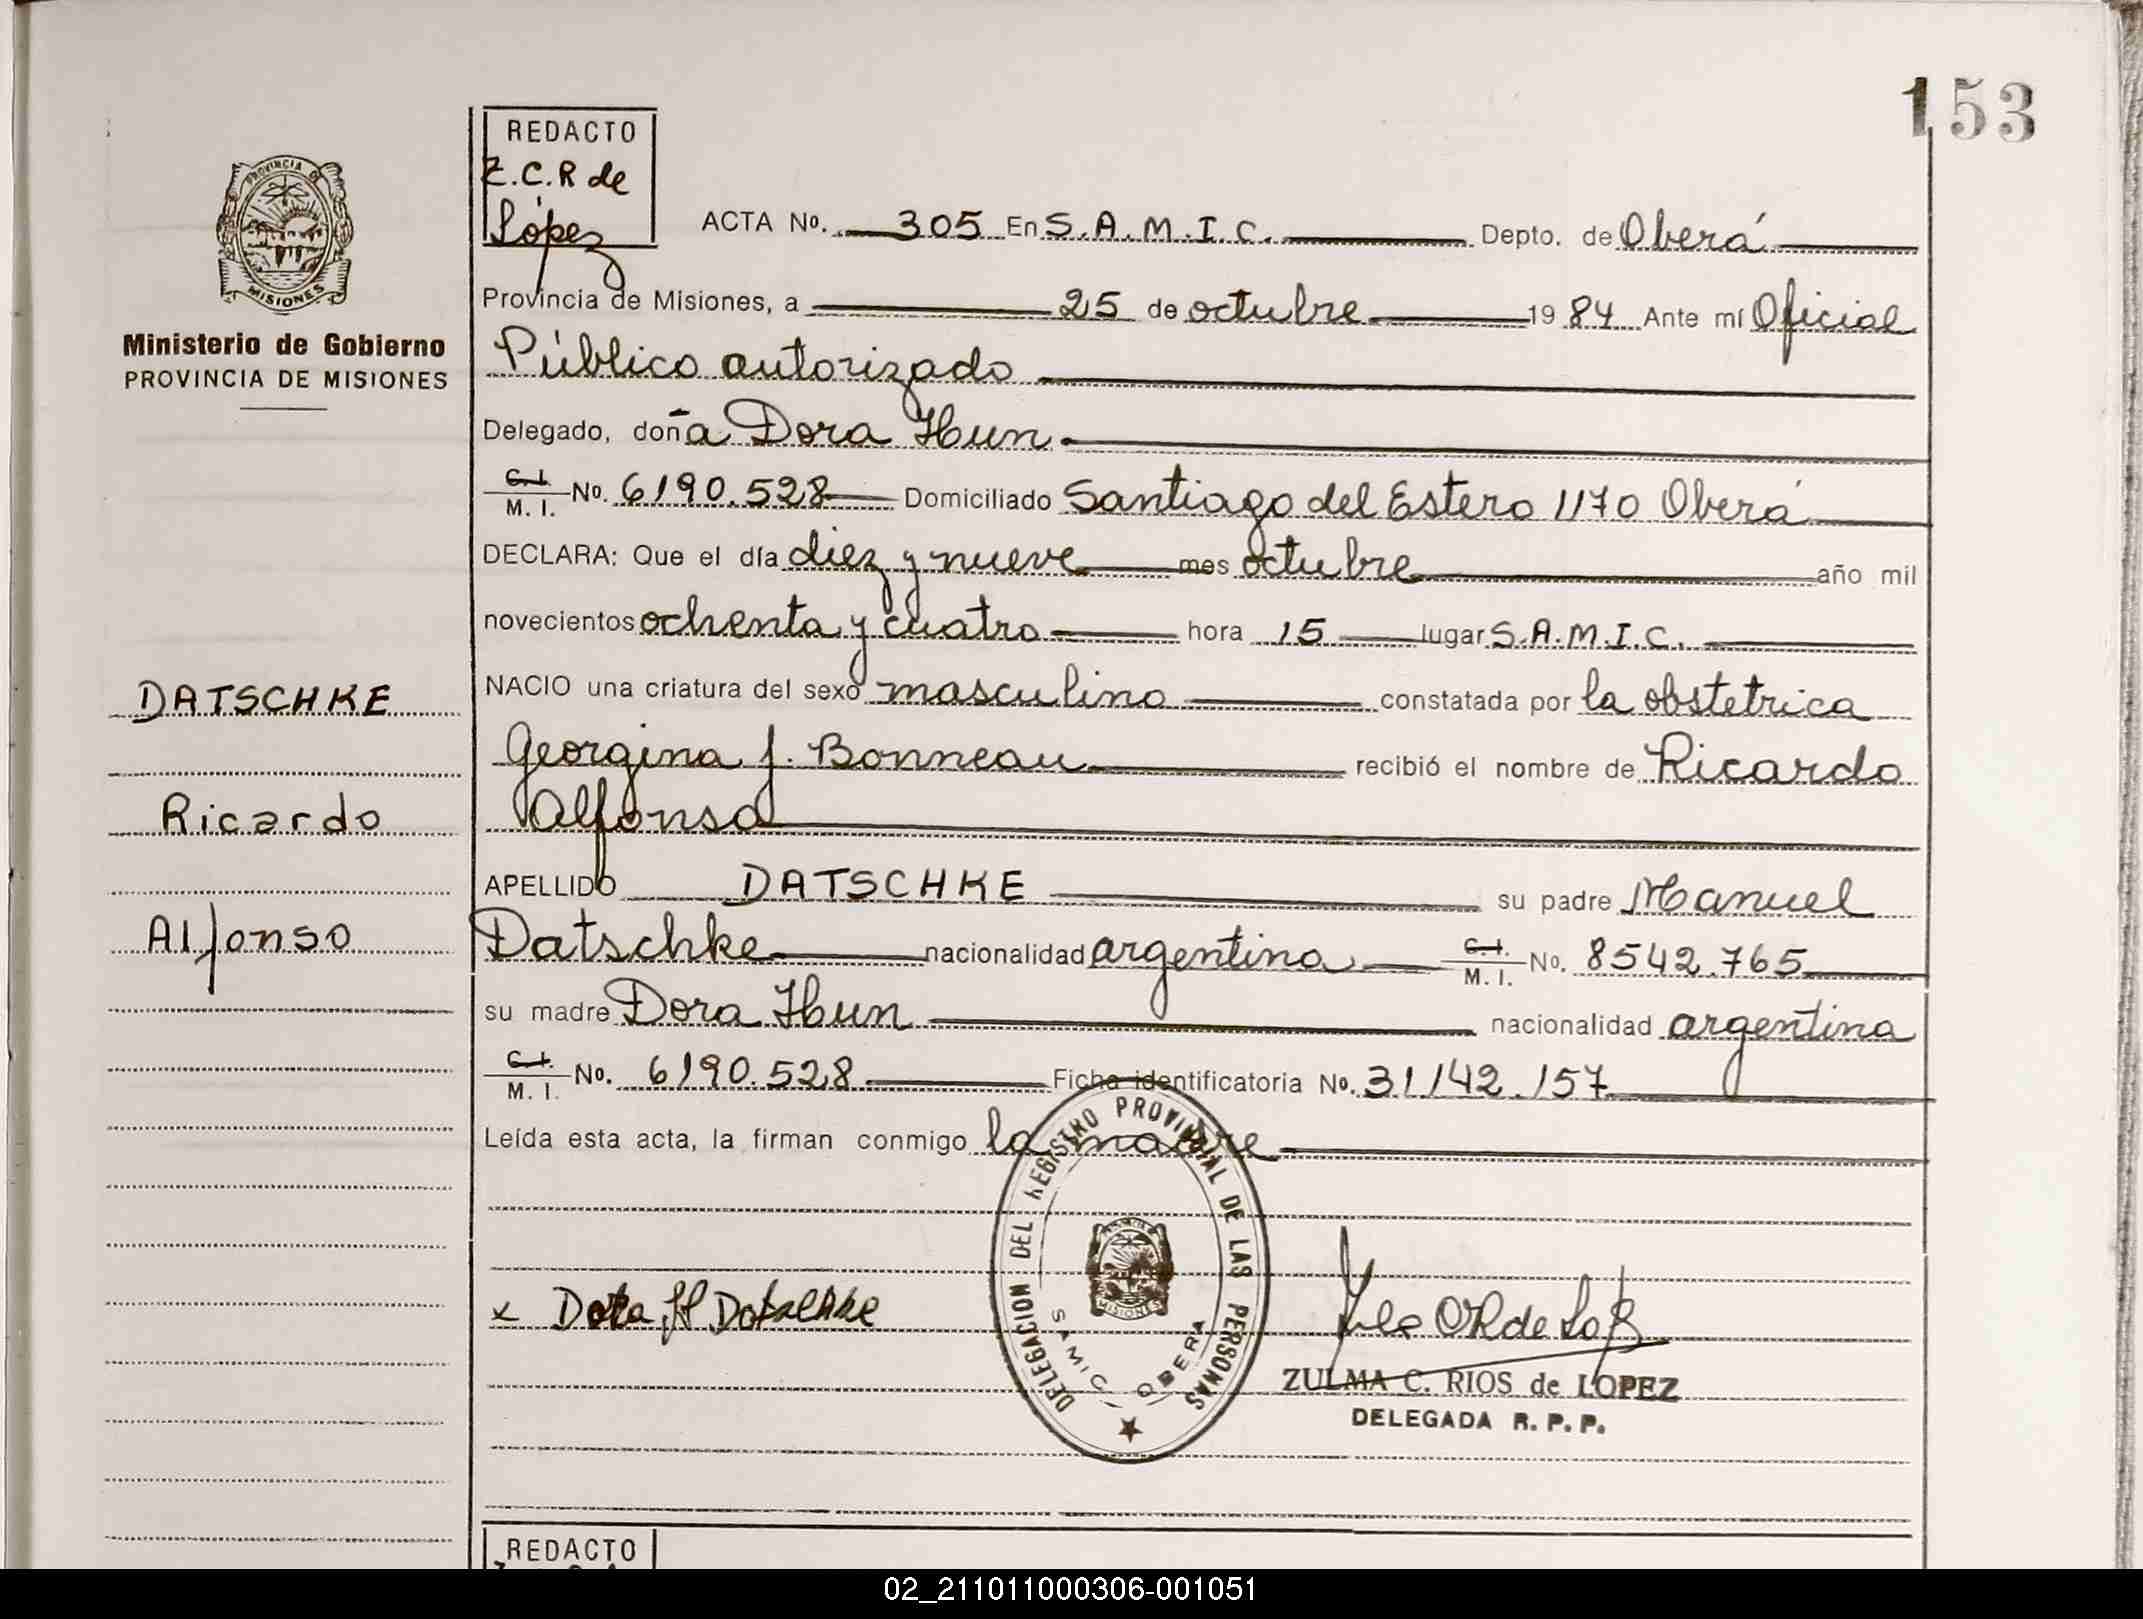 153
REDACTO
Z.C.R de
López
PROVINCIA DE
MISIONES
Ministerio de Gobierno
PROVINCIA DE MISIONES
ACTA No. 305 En S.A.M.I.C. Depto. de Oberá
Provincia de Misiones, a 25 de octubre 1984 Ante mí Oficial
Público autorizado
Delegado, doña Dora Hun
C.I. M.I. No. 6190.528 Domiciliado Santiago del Estero 1170 Oberá
DECLARA: Que el día diez y nueve mes octubre año mil
novecientos ochenta y cuatro hora 15 lugar S.A.M.I.C.
DATSCHKE
NACIO una criatura del sexo masculino constatada por la obstetrica
Georgina J. Bonneau recibió el nombre de Ricardo
Ricardo
Alfonso
APELLIDO DATSCHKE su padre Manuel
Alfonso
Datschke nacionalidad argentina C.I. M.I. No. 8542.765
su madre Dora Hun nacionalidad argentina
C.I. M.I. No. 6190.528 Ficha identificatoria No. 31142.157
Leída esta acta, la firman conmigo la madre
DELEGACION DEL REGISTRO PROVINCIAL DE LAS PERSONAS
MISIONES
SAMIC OBERA
x Dora H Datschke
ZULMA C. RIOS de LOPEZ
DELEGADA R.P.P.
REDACTO
02_211011000306-001051